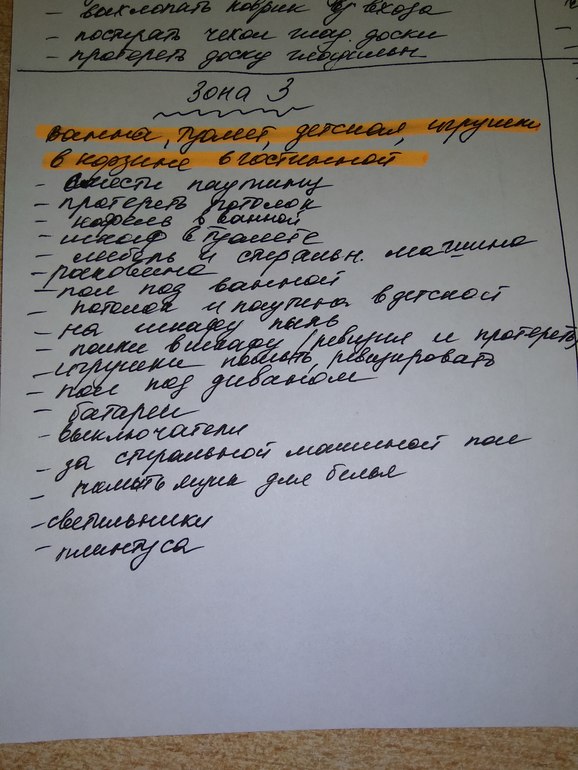 - выхлопать коврик у входа
- постирать чехол глад. доски
- протереть доску гладильн
Зона 3
ванна, туалет, детская, игрушки
в корзине в гостинной
- смести паутину
- протереть потолок
- кафель в ванной
- шкаф в туалете
- мебель и стиральн. машина
- раковина
- пол под ванной
- потолок и паутина в детской
- на шкафу пыль
- полки в шкафу (ревизия и протереть)
- игрушки помыть, ревизировать
- пол под диваном
- батареи
- выключатели
- за стиральной машиной пол
- помыть ящик для белья
- светильники
- плинтуса